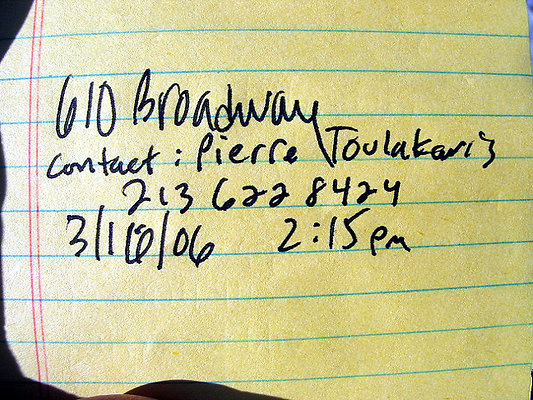 610 Broadway
contact : Pierre Toulakaris
213 622 8424
3/16/06 2:15 pm